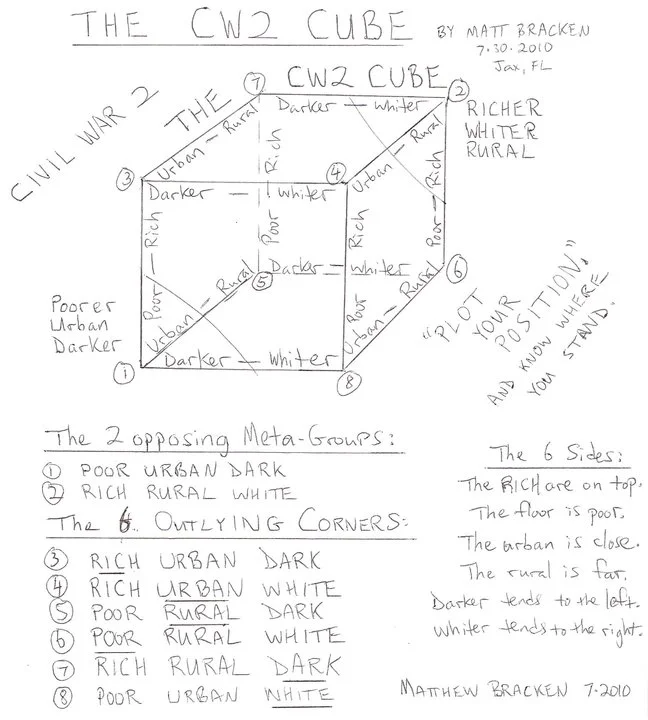 THE CW2 CUBE
BY MATT BRACKEN
7-30-2010
Jax, FL
CIVIL WAR 2
THE CW2 CUBE
7
2
Darker — Whiter
Urban — Rural
RICHER
WHITER
RURAL
3
4
Urban — Rural
Darker — Whiter
Poor — Rich
Poor Rich
Poor Rich
Poor — Rich
5
Darker — Whiter
6
Poorer
Urban
Darker
Urban — Rural
Urban — Rural
1
Darker — Whiter
8
"PLOT
YOUR
POSITION,"
AND KNOW WHERE
YOU STAND.
The 2 opposing Meta-Groups:
1 POOR URBAN DARK
2 RICH RURAL WHITE
The 6 OUTLYING CORNERS:
3 RICH URBAN DARK
4 RICH URBAN WHITE
5 POOR RURAL DARK
6 POOR RURAL WHITE
7 RICH RURAL DARK
8 POOR URBAN WHITE
The 6 Sides:
The RICH are on top.
The floor is poor.
The urban is close.
The rural is far.
Darker tends to the left.
Whiter tends to the right.
MATTHEW BRACKEN 7-2010